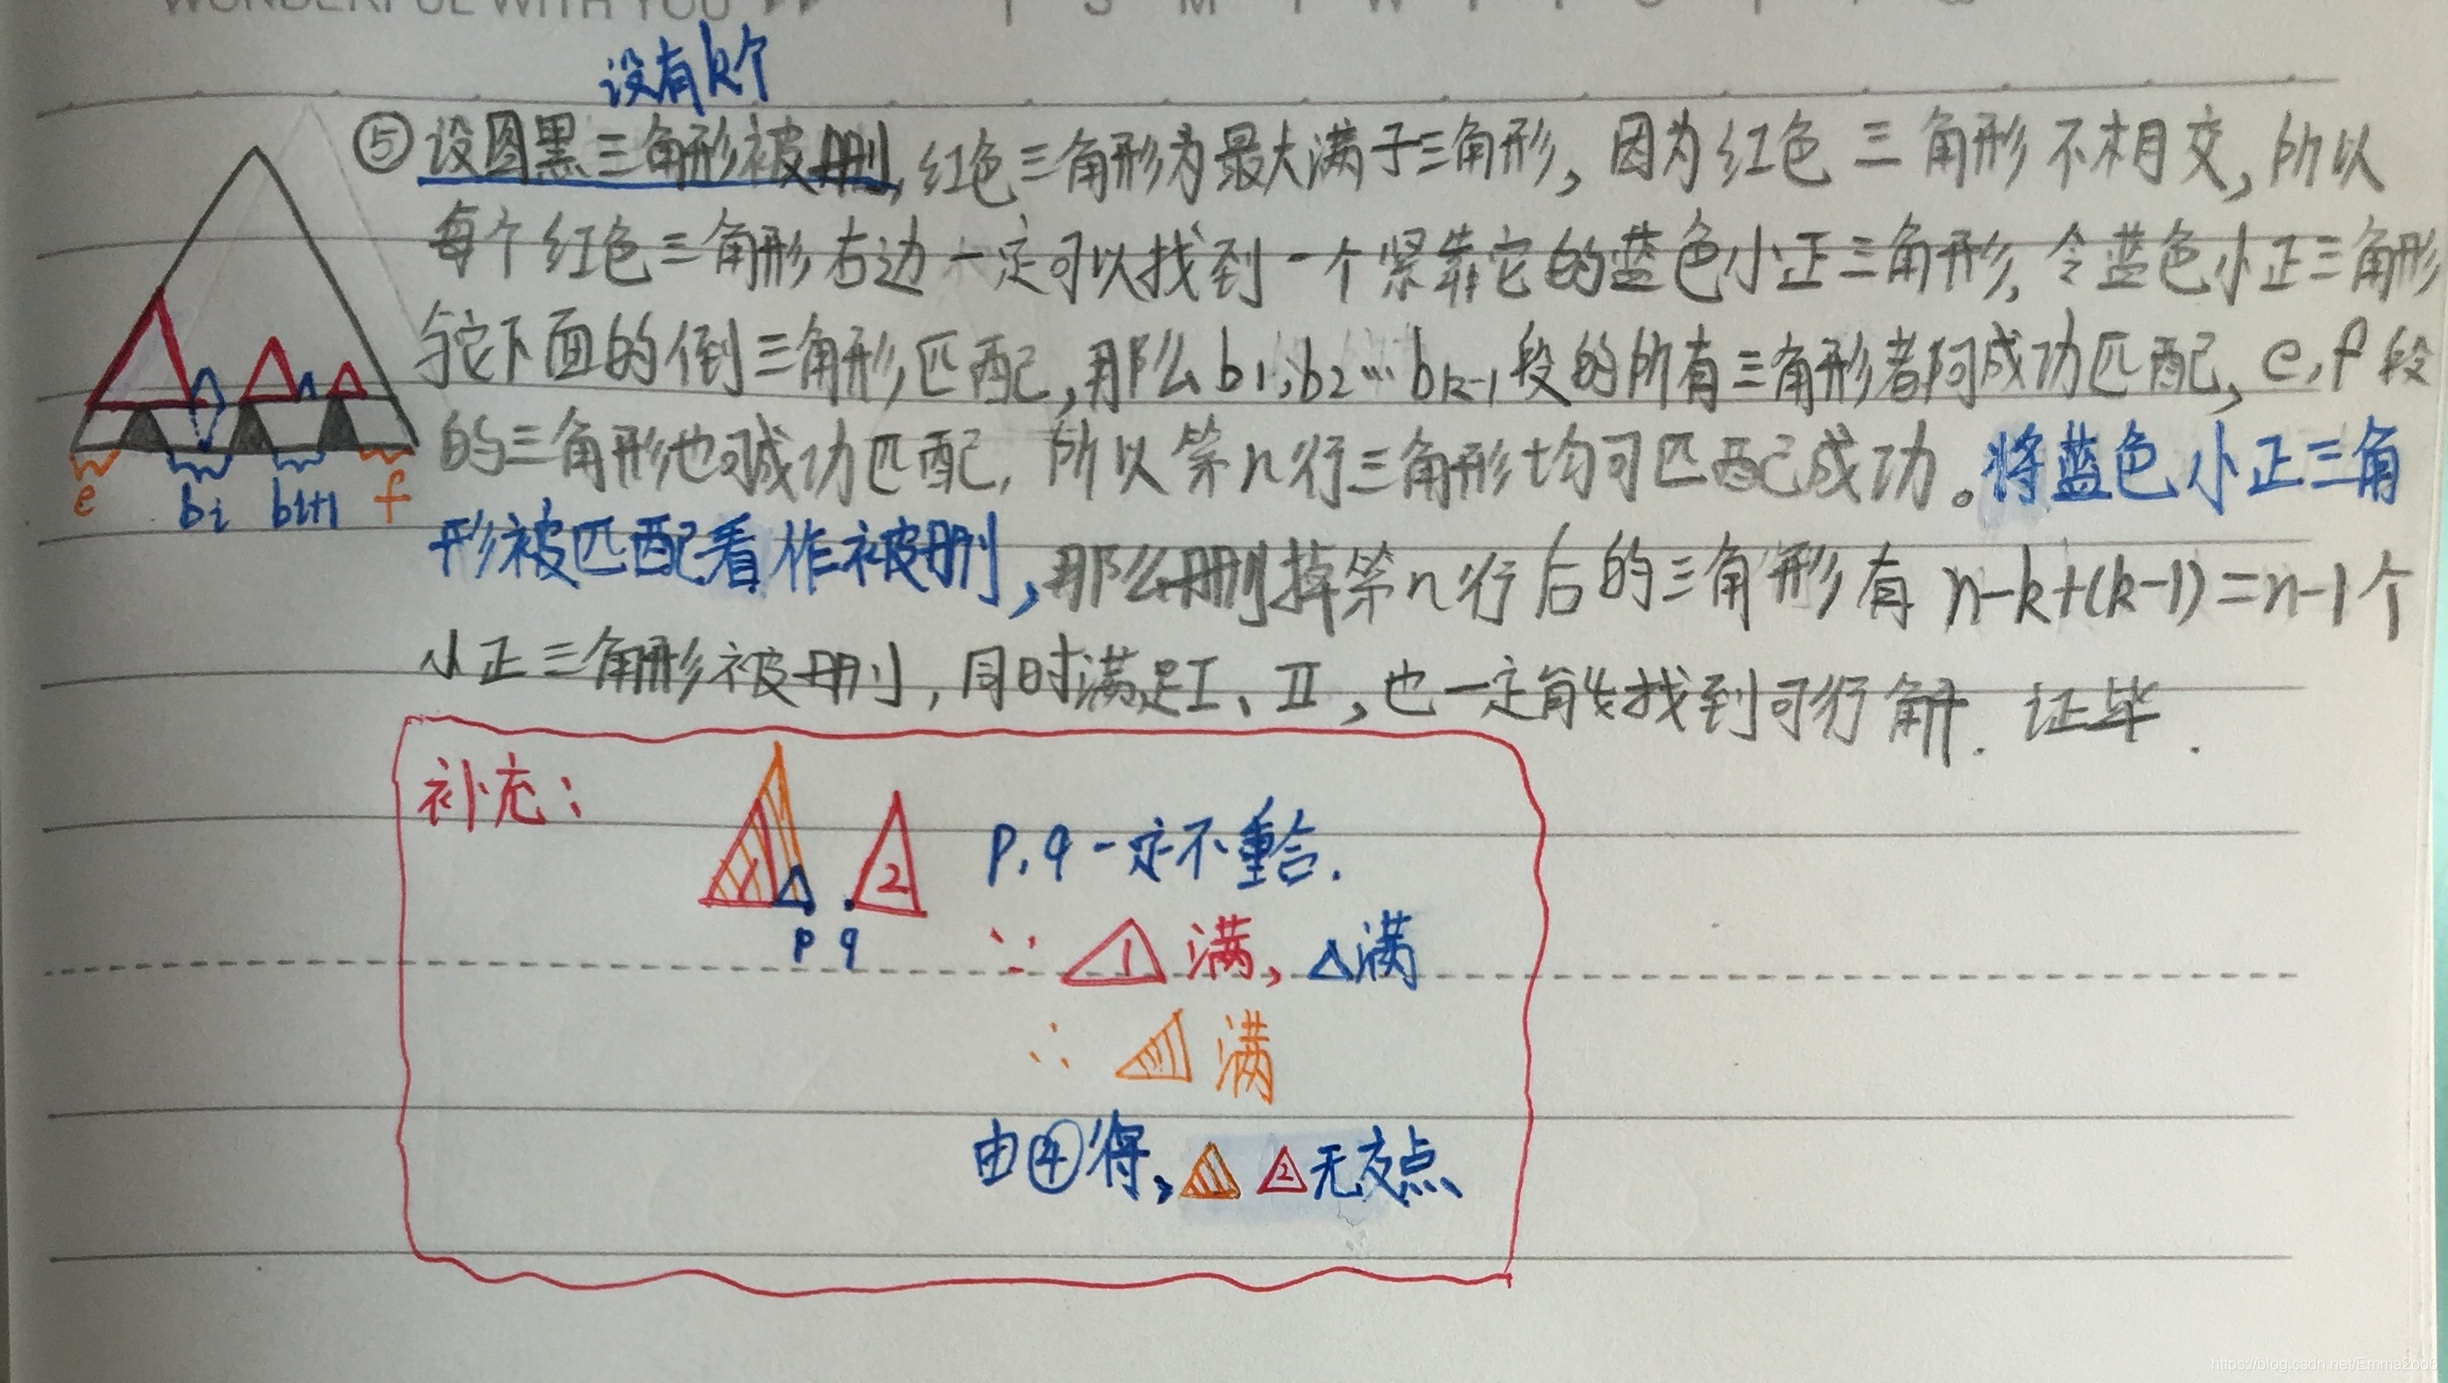 WONDERFUL WITH YOU
设有k个
⑤设图黑三角形被删,红色三角形为最大满子三角形,因为红色三角形不相交,所以
每个红色三角形右边一定可以找到一个紧靠它的蓝色小正三角形,令蓝色小正三角形
与它下面的倒三角形匹配,那么b1,b2…bk-1段的所有三角形都可成功匹配,e,f段
的三角形也可成功匹配,所以第n行三角形均可匹配成功。将蓝色小正三角
形被匹配看作被删,那么删掉第n行后的三角形有n-k+(k-1)=n-1个
小正三角形被删,同时满足Ⅰ、Ⅱ,也一定能找到可行解.证毕.
e bi bi+1 f
补充:
1 2
p q
p,q一定不重合.
∵ △1 满, △满
∴ △ 满
由④得, △ △2 无交点
https://blog.csdn.net/Emma2oo6